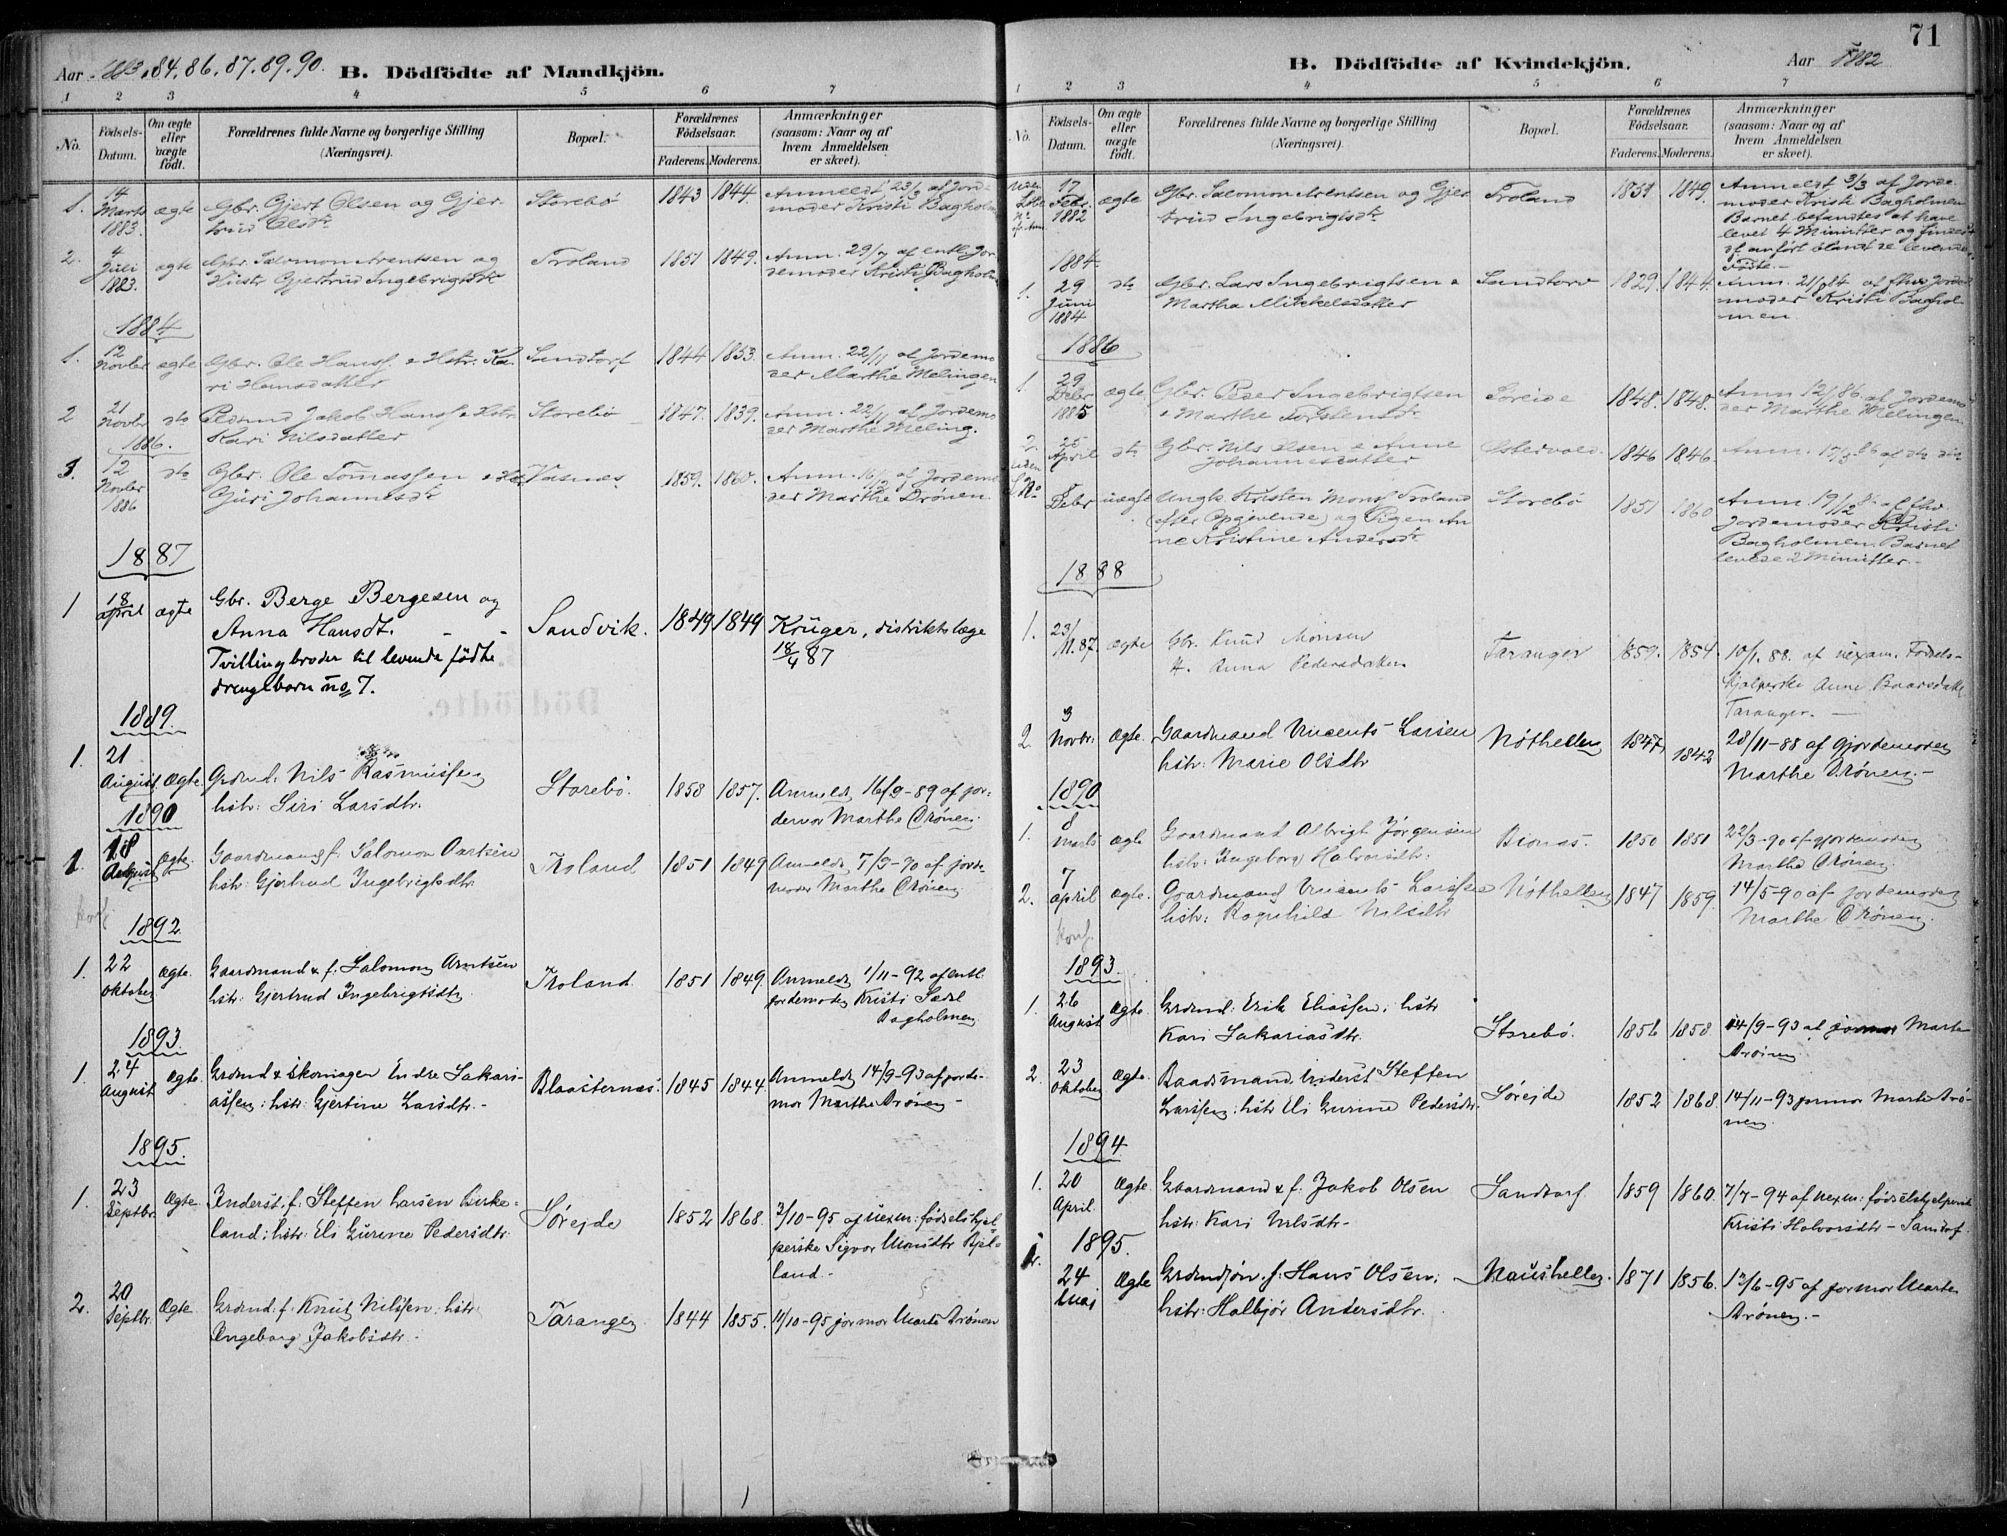 71
Aar 1883, 84, 86, 87, 89, 90. B. Dödfödte af Mandkjön.
1 2 3 4 5 6 7
No. Födsels-Datum. Om ægte eller uægte födt. Forældrenes fulde Navne og borgerlige Stilling (Næringsvei). Bopæl. Forældrenes Födselsaar. Faderens. Moderens. Anmærkninger (saasom: Naar og af hvem Anmeldelsen er skeet).
1. 14 Marts 1883. ægte Gbr. Gjert Olsen og Gjertrud Olsdr Storebø 1843 1844. Anmeldt 23/3 af Jordemoder Kristi Bagholmen
2. 4 Juli 1883. ægte Gbr. Salomon Arentsen og Hustr Gjertrud Ingebrigtsdr Troland 1851 1849. Anm. 29/7 af entl. Jordemoder Kristi Bagholmen
1884
1. 12 Novbr ægte Gbr. Ole Hanss. & Hstr. Kari Hansdatter Sandtorf 1844 1853. Anm. 22/11 af Jordemoder Marthe Melingen
2 21 Novbr do Jakob Hanss & Hstr Kari Nilsdatter Storebø 1847. 1839. Anm. 22/11 af Jordemoder Marthe Meling.
1886.
3. 12 Novbr 1886 do Gbr. Ole Tomassen & Guri Johannesdr Vasnes 1859. 1860. Anm. 16/12 af Jordemoder Marthe Drönen.
1887
1 18 april ægte Gbr. Berge Bergesen og
Anna Hansdt. - - Sandvik. 1849 1849 Krüger, distriktslæge
18/4 87
Tvillingbroder til levende fødte
drengebarn no 7.
1889.
1. 21 August Ægte. Grdmd: Nils Rasmussen
hstr: Siri Larsdtr. Storebø. 1858 1857. Anmeldt 16/9-89 af jordemor Marthe Drönen.
1890
1. 18 August Ægte. Gaardmand f. Salomon
hstr: Gjertrud Ingebrigtsdtr. Troland 1851 1849 Anmeldt 7/9-90 af jordemoder Marthe Drönen.
1892.
1. 22 oktober Ægte. Gaardmand & f: Salomon Arntsen
hstr: Gjertrud Ingebrigtsdtr Troland. 1851 1849. Anmeldt 1/11-92 af entl. jordemoder Kristi Bagholmen
1893.
1. 24 August Ægte. Grdmd & skomager Endre Sakariassen: hstr: Gjertine Larsdtr.- Blaasternes. 1845 1844 Anmeldt 14/9-93 af jordemor Marthe Drönen-
1895.
1. 23 Septbr. Ægte. Inderst. f: Steffen Larsen Birkeland; hstr: Eli Gurine Pedersdtr. Sørejde 1852 1868. 3/10-95 af uexm: fødselshjelperske Sigvor Monsdtr Bjelland.-
2. 20 Septbr. Ægte. Grdmd: f: Knut Nilssen: hstr:
Ingeborg Jakobsdtr.- Taranger. 1844 1855. 11/10-95 jormor Marte Drönen
B. Dödfödte af Kvindekjön. Aar 1882
1 2 3 4 5 6 7
No. Födsels-Datum. Om ægte eller uægte födt. Forældrenes fulde Navne og borgerlige Stilling (Næringsvei). Bopæl. Forældrenes Födselsaar. Faderens. Moderens. Anmærkninger (saasom: Naar og af hvem Anmeldelsen er skeet).
17 Febr. 1882 ægte Gbr. Salomon Arentsen og Gjertrud Ingebrigtsdr Troland 1851 1849. Anmeldt 3/3 af Jordemoder Kristi Bagholmen
Barnet befandtes at have
levet 4 Minutter og findes
df. anført blandt de levende
Fødte.-
1884.
1. 29 Juni 1884 do Gbr. Lars Ingebrigtsen &
Martha Mikkelsdatter Sandtorv 1829. 1844. Anm. 21/8 84 af fhv. Jordemoder Kristi Bagholmen.
1886
1. 29 Debr 1885 ægte Gbr. Peder Ingebrigtsen
& Marthe Torstensdr Søreide 1848. 1848. Anm 12/ 86 af Jordemoder Marthe Melingen
2. 25 April do Gbr. Nils Olsen & Anne
Johannesdatter Østervold. 1846 1846. Anm. 17/5 86 af do do
uden L No Debr uægte Ungk. Kristen Monss Troland
(efter Opgivende) og Pigen Anne Kristine Andersdr Storebø 1851 1860 Anm. 19/12 af fhv.
Jordemoder Kristi
Bagholmen. Barnet
levede 2 Minutter.-
1888
1. 23/11.87. ægte Gbr. Knud Monsen
H. Anna Pedersdatter Taranger 1859. 1854. 10/1.88. af uexam. Fødselshjelperske Anne Baardsdatter
Taranger.-
2. 3 Novbr: Ægte. Gaardmand Vincents Larsen
hstr: Marie Olsdtr Nöthellen 1847 1842 28/11-88 af gjordemoder
Marthe Drönen.-
1890
1. 8 Marts ægte Gaardmand Albrigt Jørgensen
hstr: Ingeborg Halvorsdtr. Bionas. 1850 1851 22/3-90 af gjordemoder
Marthe Drönen.
2. 7 april ægte. Gaardmand Vincents Larssen
hstr: Ragnhild Nilsdtr Nöthellen 1847 1859. 14/5-90 af jordemoder
Marthe Drönen.
1893.
1. 26 August Ægte Grdmd: Erik Eliassen; hstr
Kari Sakariasdtr. Storebø. 1856 1858 14/9-93 af jormor Marte
Drönen
2. 23 Oktober Ægte. Baadsmand. Inderst Steffen
Larssen: hstr Eli Gurine Pedersdtr. Sørejde 1852 1868 14/11-93 jormor Marte Drönen
1894
1. 20 April Ægte. Gaardmand & f: Jakob Olsen
hstr: Kari Nilsdtr- Sandtorf 1859 1860. 7/7-94 af uexm: fødselshjelperske
Kristi Halvorsdtr-Sandtof.
1895.
1. 24 Maj Ægte Grdmdsøn. f: Hans Olsen;
hstr: Halbjør Andersdtr. Naushellen. 1871 1856. 12/6-95 af jormor Marte
Drönen.-